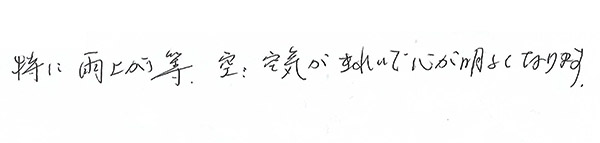 特に雨上がり等、空:空気がきれいで心が明るくなります。